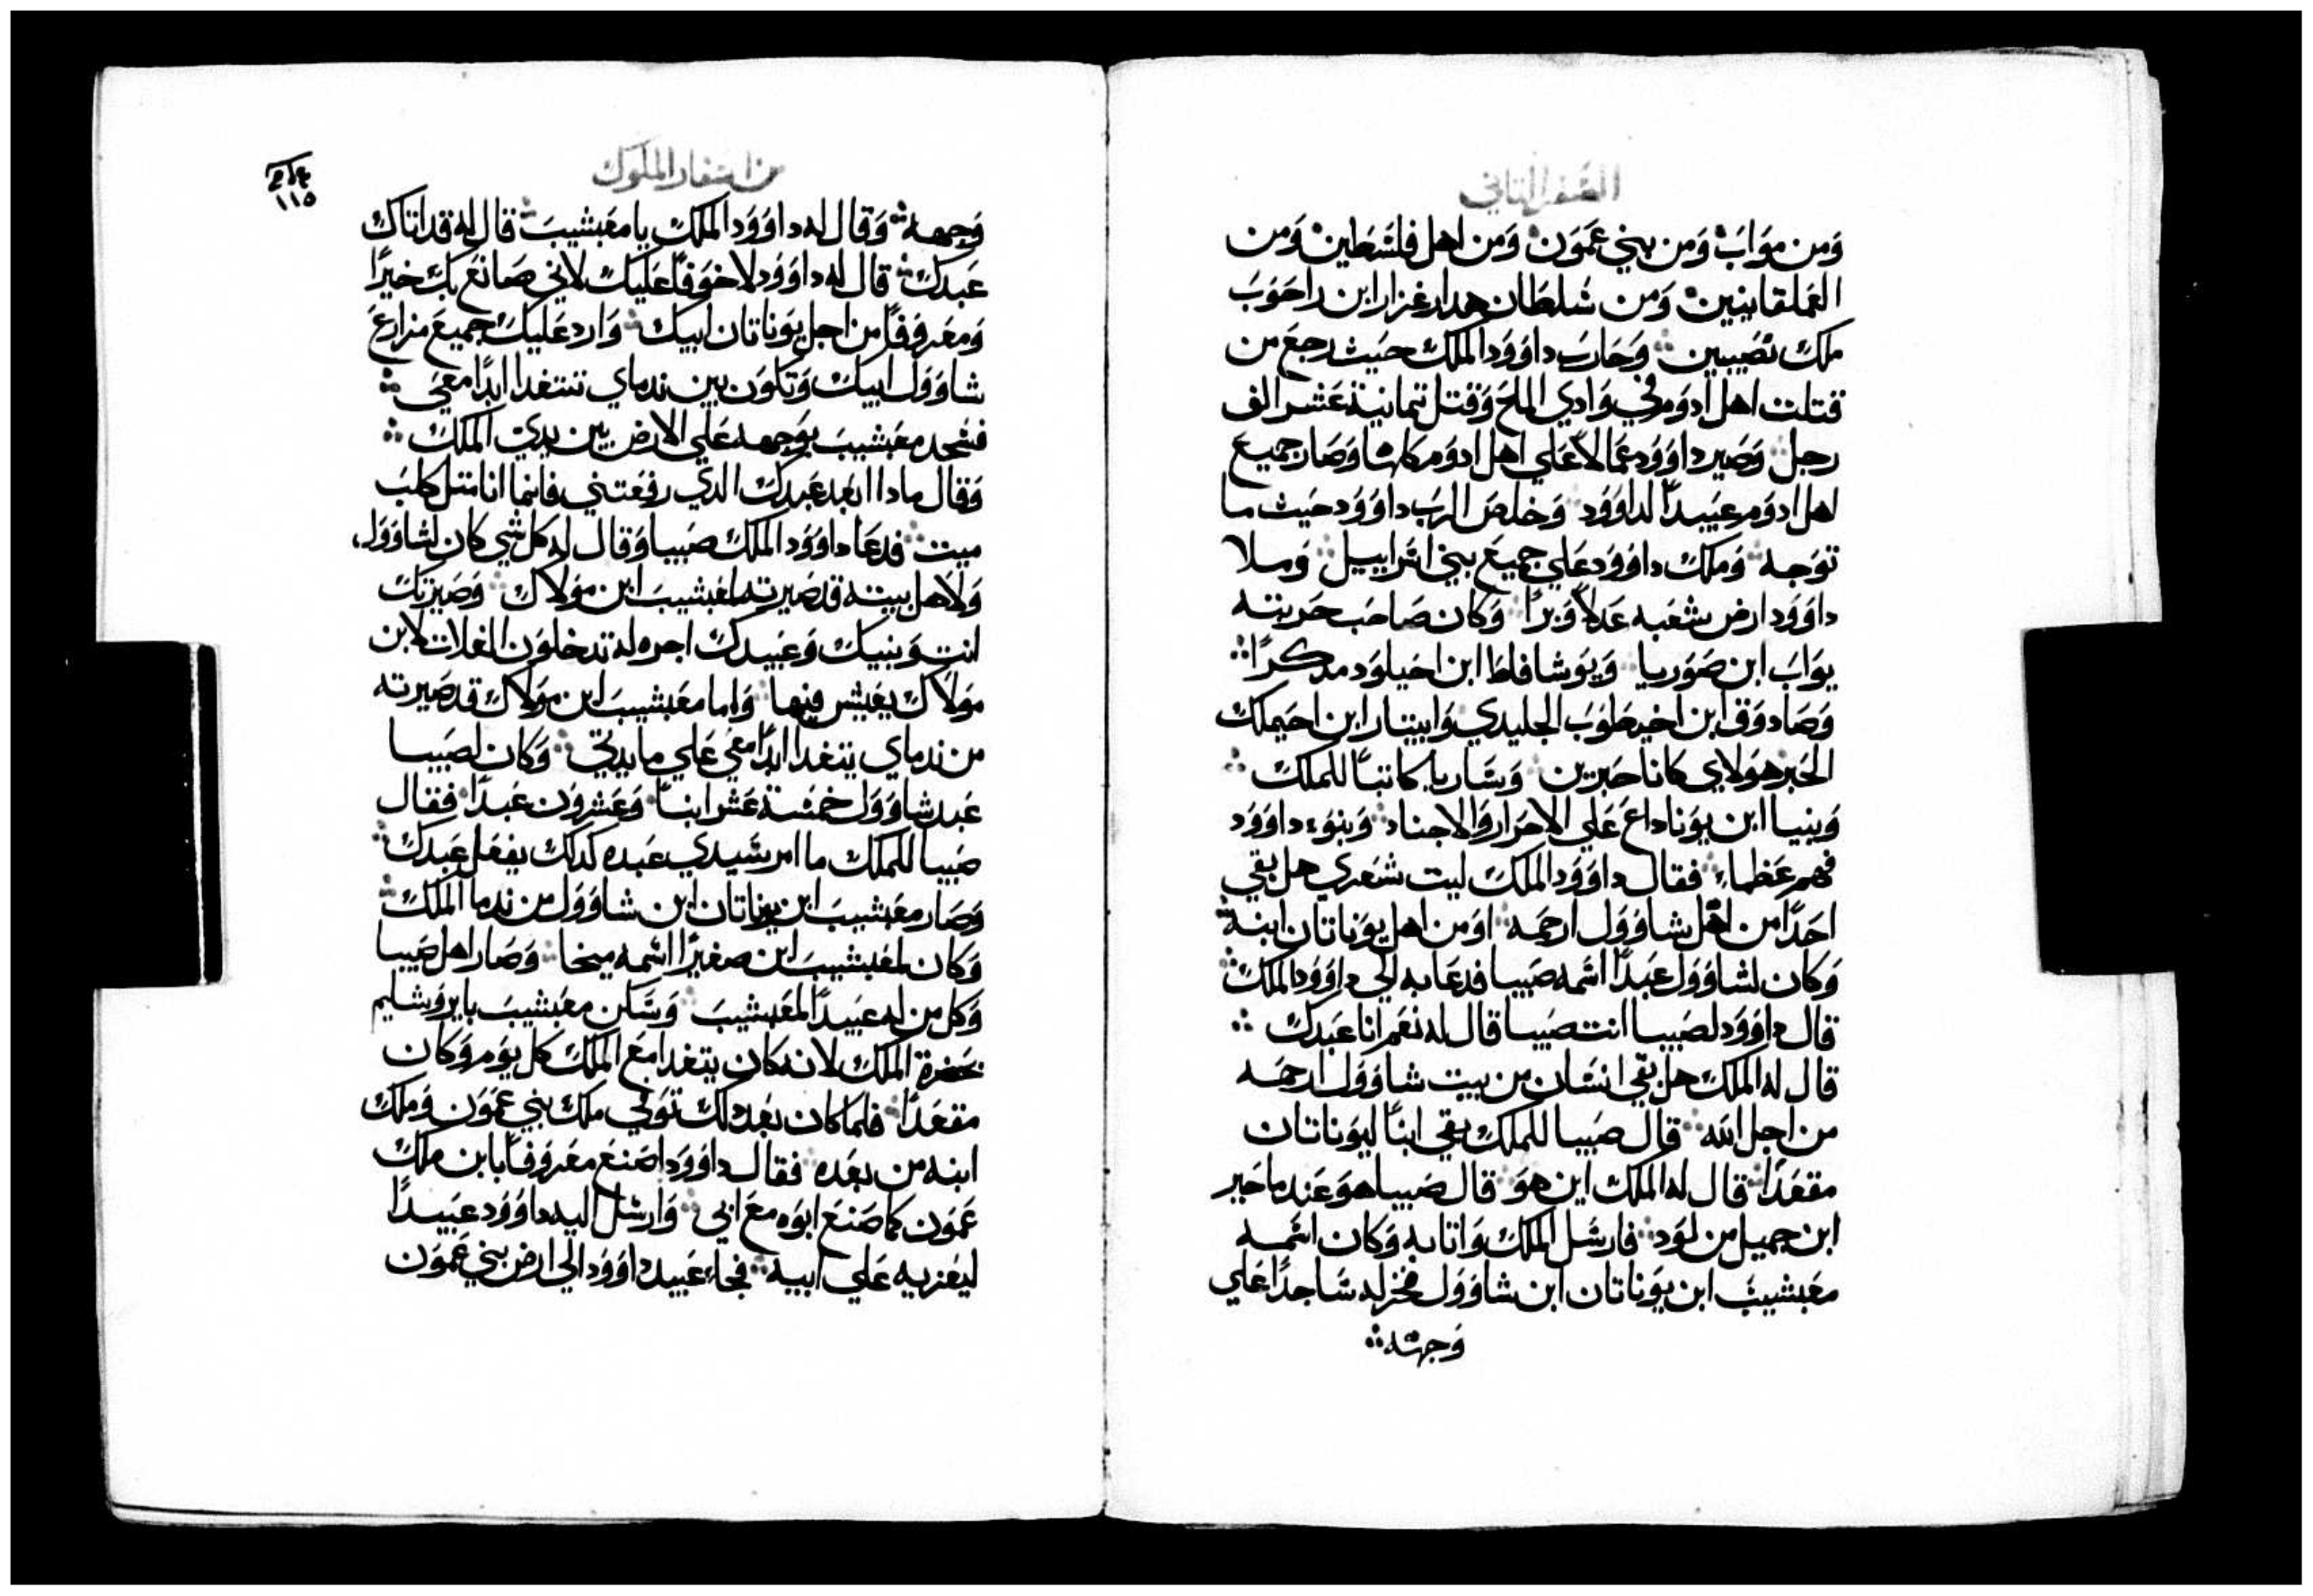 السفر الثاني
وَمن موَابَ وَمن بني عمَوَن وَمن اهل فلسَطين وَمن
العَملقانيين وَمن سُلطان هدارغزار ابن راحَوَبَ
ملك نصَيبين وَحَاربَ داوَوَد الملك حيَث رجعَ من
قتلت اهل ادوَم في وَادي الملحَ وَقتل تمانية عَشر الف
رجل وَصَير داوَوَد عمالاً عَلي اهل ادوَم كلها وَصَار جميعَ
اهل ادوَم عَبيداً لداوَوَد وَخلصَ الربَ داوَوَد حيَث ما
توَجه وَملك داوَوَد عَلي جميعَ بني اسَراييل وَملا
داوَوَد ارض شعَبه عَدلاً وَبراً وَكان صَاحبَ حَربته
يوَابَ ابن صَوَريا وَيوَشافاط ابن احَيلوَد مدكراً
وَصَادوَق ابن اخيطوَبَ الجليدي وَابيتار ابن احَيملك
الحَبر هوَلاي كانا حَبرين وَسَاريا كاتباً للملك
وَبنيا ابن يوَناداعَ عَلي الاحَرار وَالاجناد وَبنوَء داوَوَد
فهم عَظماء فقال داوَوَد الملك ليت شعَري هل بقي
احَداً من اهل شاوَوَل ارحمَه اوَ من اهل يوَناتان ابنه
وَكان لشاوَوَل عَبداً اسَمه صَيبا فدعَا به الي داوَوَد الملك
قال داوَوَد لصَيبا انت صَيبا قال له نعَم انا عَبدك
قال له الملك هل بقي انسَان من بيت شاوَوَل ارحمَه
من اجل الله قال صَيبا للملك بقي ابناً ليوَناتان
مقعَداً قال له الملك اين هوَ قال صَيبا هوَ عَند ماخير
ابن جميل من لوَد فارسَل الملك وَاتا به وَكان اسَمه
معَبشيبَ ابن يوَناتان ابن شاوَوَل فخر له سَاجداً عَلي
وَجهه
من اسفار الملوك
١١٥
وَجهه وَقال له داوَوَد الملك يا معَبشيبَ قال له قد اتاك
عَبدك قال له داوَوَد لا خوَفاً عَليك لاني صَانعَ بك خيراً
وَمعَروَفاً من اجل يوَناتان ابيك وَارد عَليك جميعَ مزارعَ
شاوَوَل ابيك وَتكوَن بين ندماي تتغدا ابداً معَي
فسَجد معَبشيبَ بوَجهه عَلي الارض بين يدي الملك
وَقال مادا ابعَد عَبدك الدي رفعَتني فانما انا متل كلبَ
ميت فدعَا داوَوَد الملك صَيبا وَقال له كل شي كان لشاوَوَل
وَلاهل بيته قد صَيرته لمعَبشيبَ ابن موَلاك وَصَيرتك
انت وَبنيك وَعَبيدك اجره له تدخلوَن الغلات لابن
موَلاك يعَيش فيها وَاما معَبشيبَ ابن موَلاك قد صَيرته
من ندماي يتغدا ابداً معَي عَلي مايدتي وَكان لصَيبا
عَبد شاوَوَل خمسَة عَشر ابناً وَعَشروَن عَبداً فقال
صَيبا للملك ما امر سَيدي عَبده كدلك يفعَل عَبدك
وَصَار معَبشيبَ ابن يوناتان ابن شاوَوَل من ندما الملك
وَكان لمعَبشيبَ ابن صغيراً اسَمه ميخا وَصَار اهل صَيبا
وَكل من له عَبيداً لمعَبشيبَ وَسَكن معَبشيبَ بايروَشليم
بحَضرة الملك لانه كان يتغدا معَ الملك كل يوَم وَكان
مقعَداً فلما كان بعَد دلك توَفي ملك بني عمَوَن وَملك
ابنه من بعَده فقال داوَوَد اصَنعَ معَروَفاً بابن ملك
عمَوَن كما صَنعَ ابوَه معَ ابي وَارسَل اليه داوَوَد عَبيداً
ليعَزيه عَلي ابيه فجاء عَبيد داوَوَد الي ارض بني عَموَن